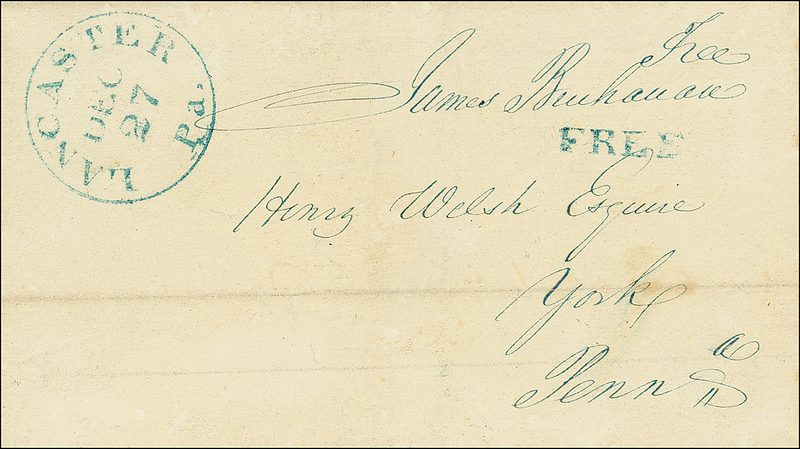 LANCASTER Pa.
DEC
27
Free
James Buchanan
FREE
Henry Welsh Esquire
York
Penna